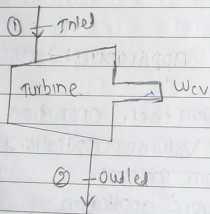 ① Inlet
Turbine
Wcv
② outlet